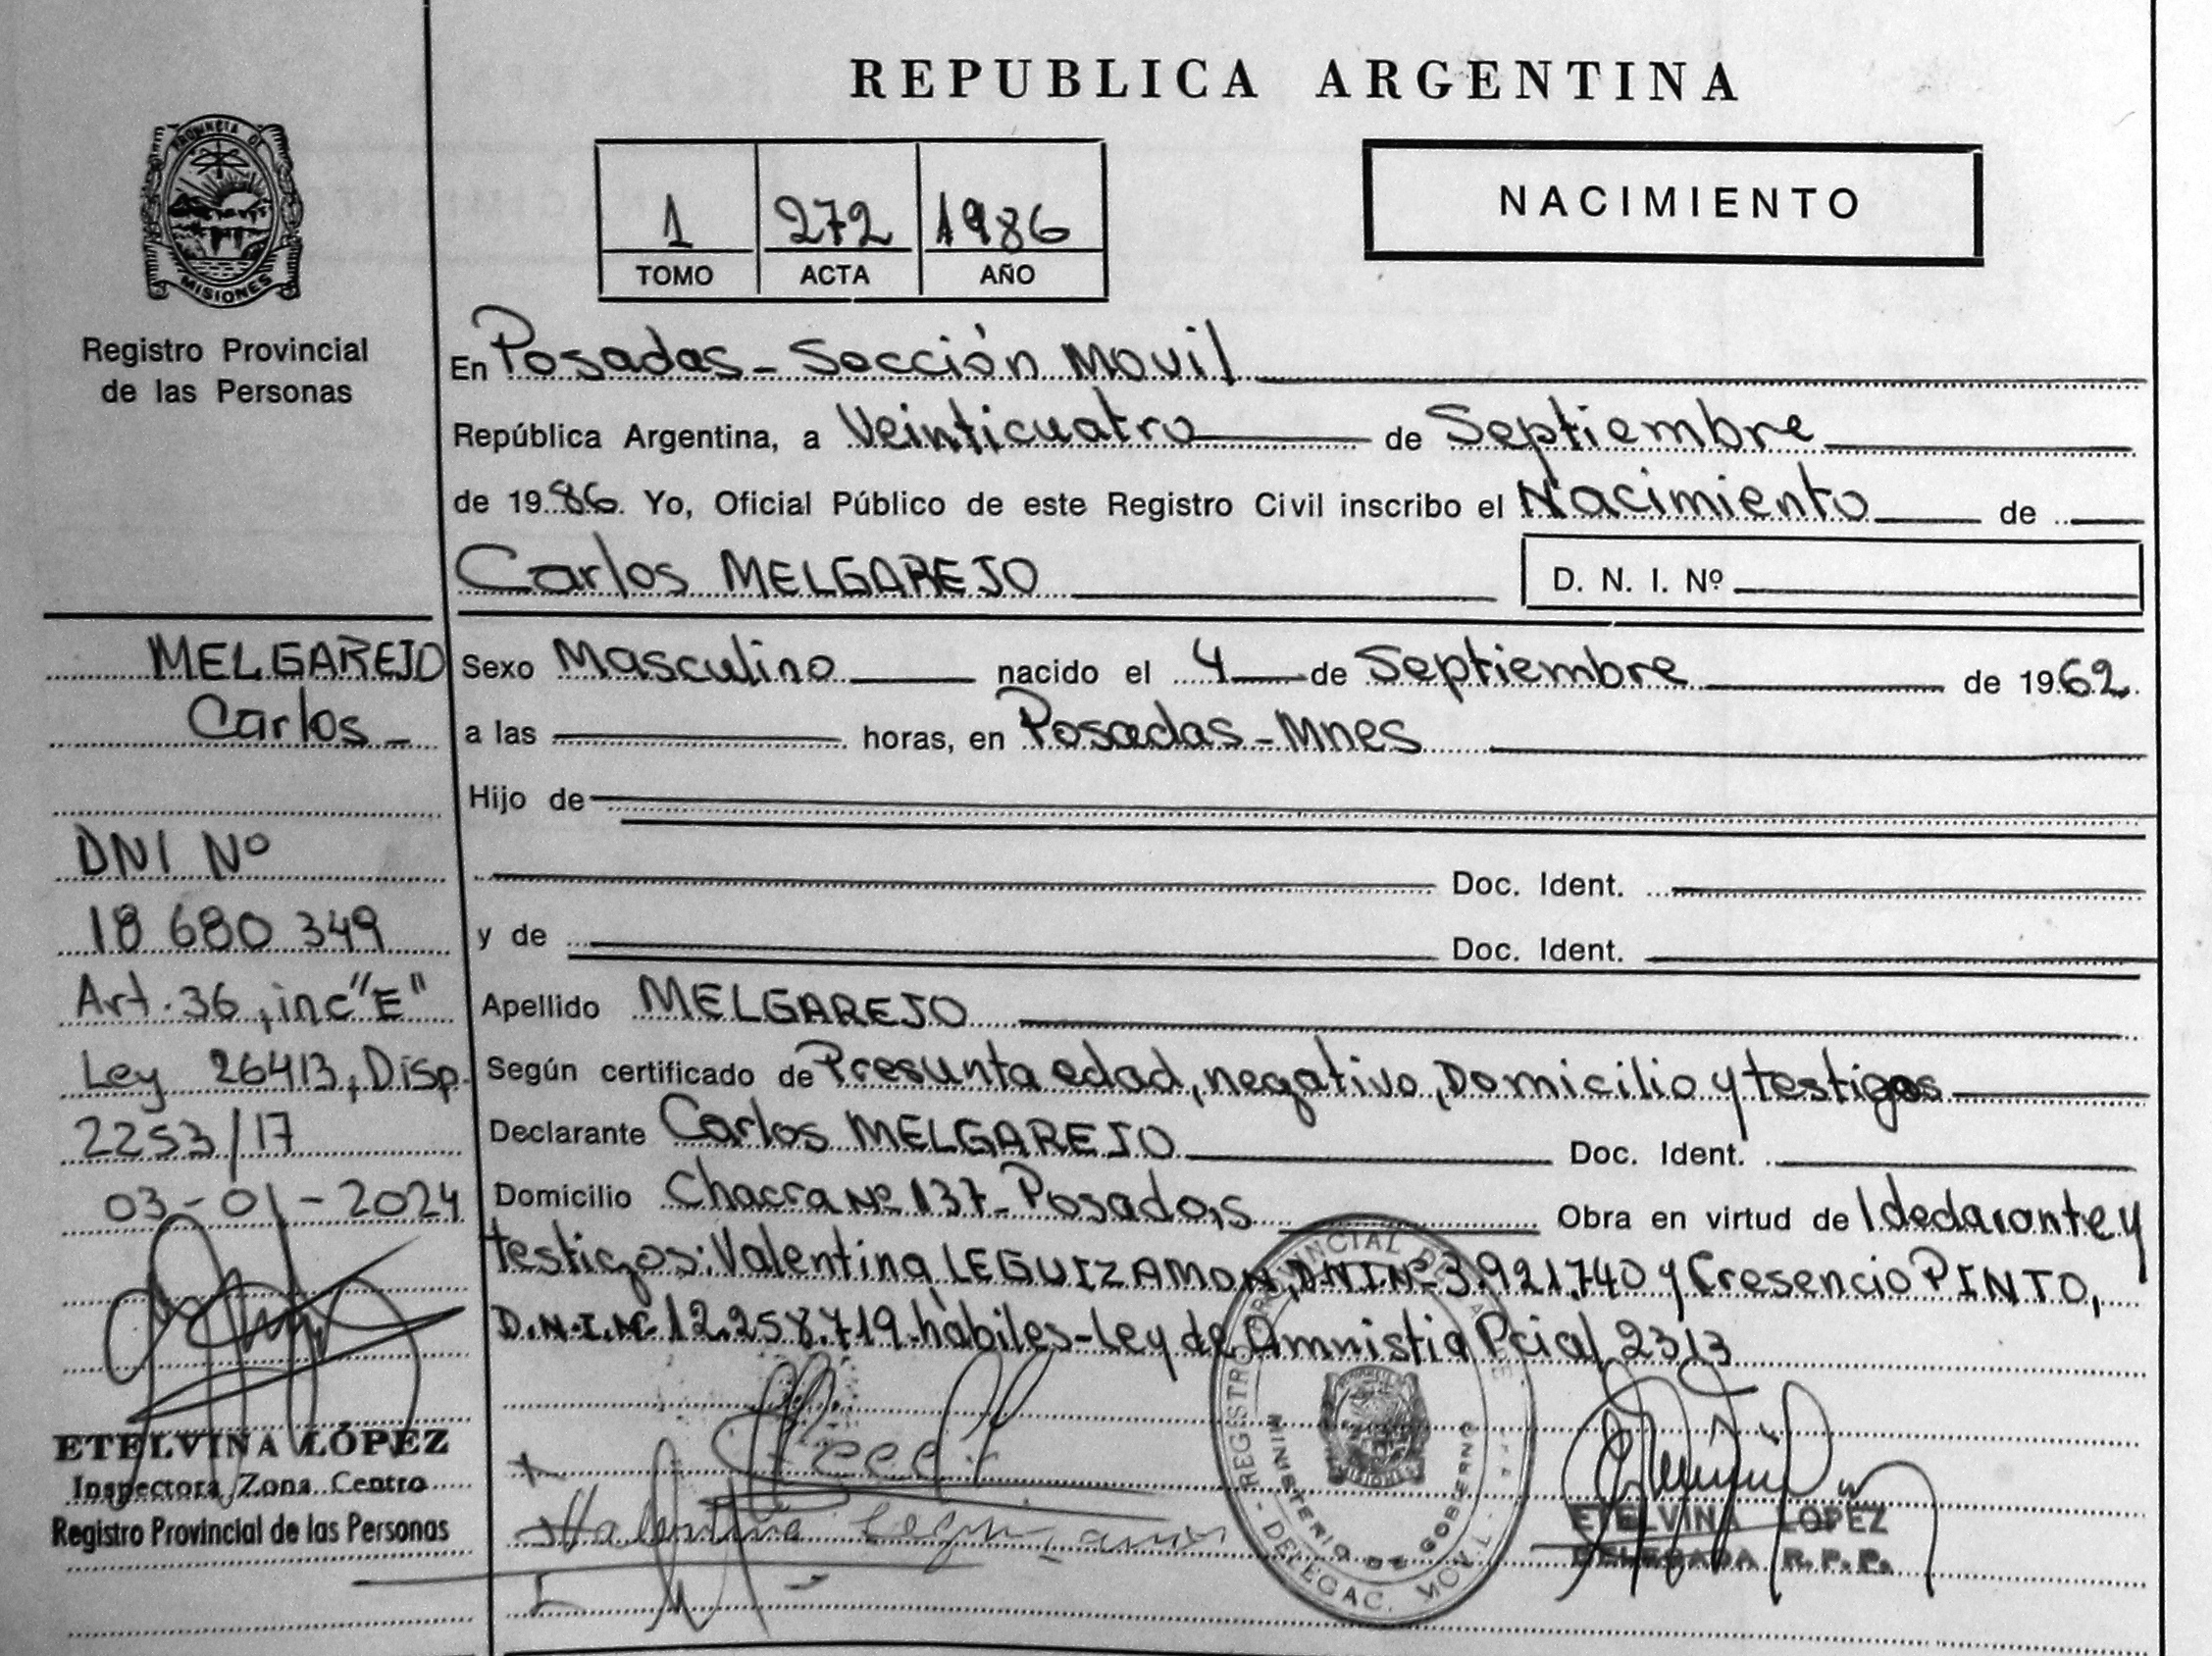 REPUBLICA ARGENTINA
PROVINCIA DE
MISIONES
Registro Provincial
de las Personas
1 272 1986
TOMO ACTA AÑO
NACIMIENTO
En Posadas - Sección Movil
República Argentina, a Veinticuatro de Septiembre
de 1986. Yo, Oficial Público de este Registro Civil inscribo el Nacimiento de
Carlos MELGAREJO
D. N. I. Nº
MELGAREJO
Carlos -
DNI Nº
18 680 349
Art. 36, inc "E"
Ley 26413, Disp.
2253/17
03-01-2024
ETELVINA LÓPEZ
Inspectora Zona Centro
Registro Provincial de las Personas
Sexo Masculino nacido el 4 de Septiembre de 1962.
a las horas, en Posadas - Mnes
Hijo de
Doc. Ident.
y de Doc. Ident.
Apellido MELGAREJO
Según certificado de Presunta edad, negativo, Domicilio y testigos
Declarante Carlos MELGAREJO Doc. Ident.
Domicilio Chacra Nº 137 - Posadas Obra en virtud de l declarante y
testigos: Valentina LEGUIZAMON, D.N.I.Nº 3.921.740 y Cresencio PINTO,
D.N.I.Nº 12.258.719. hábiles - Ley de Amnistia Pcial 2313
Valentina Leguizamon
MINISTERIO DE GOBIERNO
DELEGAC. MOVIL
MISIONES
ETELVINA LOPEZ
DELEGADA R.P.P.